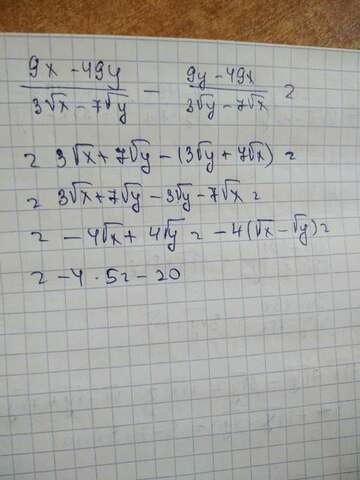 (9x - 49y)/(3√x - 7√y) - (9y - 49x)/(3√y - 7√x) =
= 3√x + 7√y - (3√y + 7√x) =
= 3√x + 7√y - 3√y - 7√x =
= - 4√x + 4√y = - 4(√x - √y) =
= - 4 · 5 = - 20